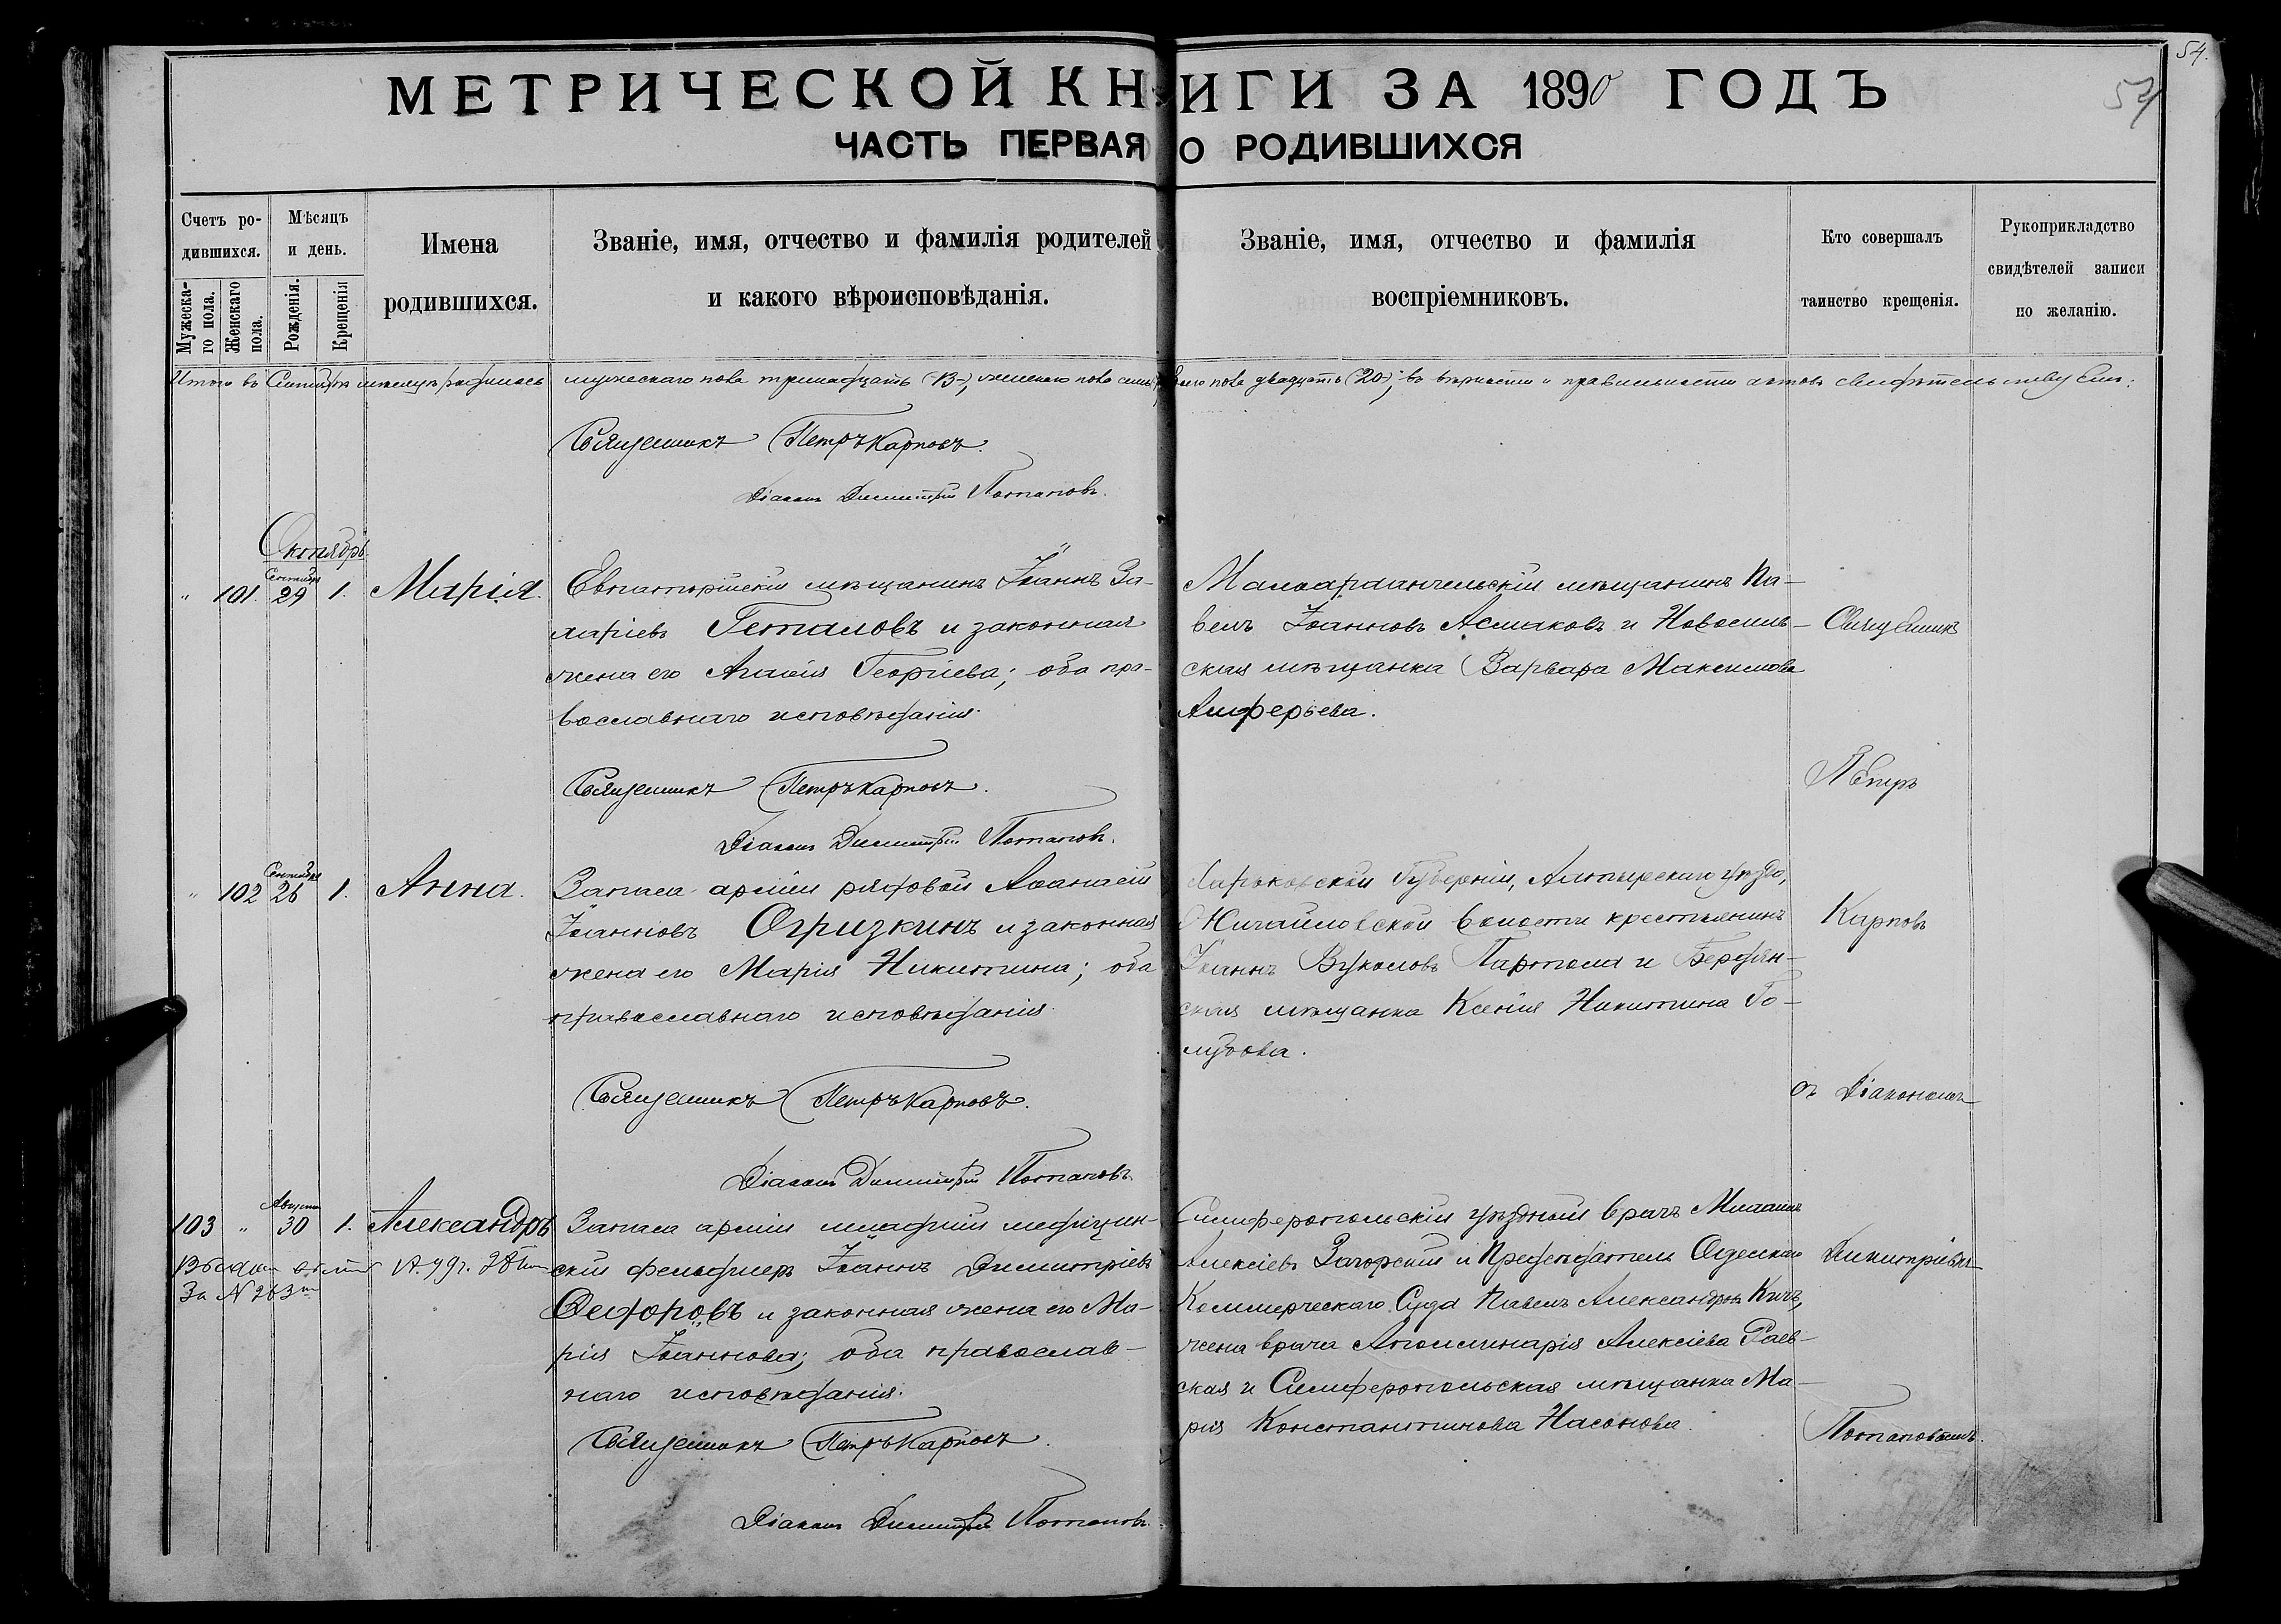 54.
54
МЕТРИЧЕСКОЙ КНИГИ ЗА 1890 ГОДЪ
ЧАСТЬ ПЕРВАЯ О РОДИВШИХСЯ
Счетъ ро-
дившихся.
Мужеска-
го пола.
Женскаго
пола.
Мѣсяцъ
и день.
Рожденія.
Крещенія
Имена
родившихся.
Званіе, имя, отчество и фамилія родителей
и какого вѣроисповѣданія.
Званіе, имя, отчество и фамилія
воспріемниковъ.
Кто совершалъ
таинство крещенія.
Рукоприкладство
свидѣтелей записи
по желанію.
Итого въ Сентябрѣ мѣсяцѣ родилось мужескаго пола тринадцать (13), женскаго пола семь, пола двадцать (20); въ вѣрности и правильности актовъ свидѣтельствуемъ:
Священникъ Петръ Карповъ.
Діаконъ Димитрій Потаповъ.
Октябрь.
" 101. Сентября 29 1. Марія.
Евпаторійскій мѣщанинъ Іоаннъ За-
харіевъ Геталовъ и законная
жена его Агаѳія Георгіева; оба пра-
вославнаго исповѣданія.
Малоархангельскій мѣщанинъ Па-
велъ Іоанновъ Асмаковъ и Новосиль-
ская мѣщанка Варвара Максимова
Алферьева.
Священникъ
Петръ
Священникъ Петръ Карповъ.
Діаконъ Димитрій Потаповъ.
" 102 Сентября 26 1. Анна.
Запаса арміи рядовой Аѳанасій
Іоанновъ Огризкинъ и законная
жена его Марія Никитина; оба
православнаго исповѣданія.
Харьковской Губерніи, уѣзда,
волости крестьянинъ
Іоаннъ Вуколовъ Партола и Бердян-
ская мѣщанка Ксенія Никитина Го-
лубова.
Карповъ
съ Діакономъ
Священникъ Петръ Карповъ.
Діаконъ Димитрій Потаповъ.
103 " Августа 30 1. Александръ
За N 263
Запаса арміи младшій медицин-
скій фельдшеръ Іоаннъ Димитріевъ
Ѳедоровъ и законная жена его Ма-
рія Іоаннова; оба православ-
наго исповѣданія.
Симферопольскій уѣздный врачъ Михаилъ
Алексіевъ Загорскій и Предсѣдатель Одесскаго
Коммерческаго Суда Павелъ Александровъ Кичъ,
жена врача Аполлинарія Алексіева Раев-
ская и Симферопольская мѣщанка Ма-
рія Константинова Насонова.
Димитріемъ
Потаповымъ.
Священникъ Петръ Карповъ.
Діаконъ Димитрій Потаповъ.